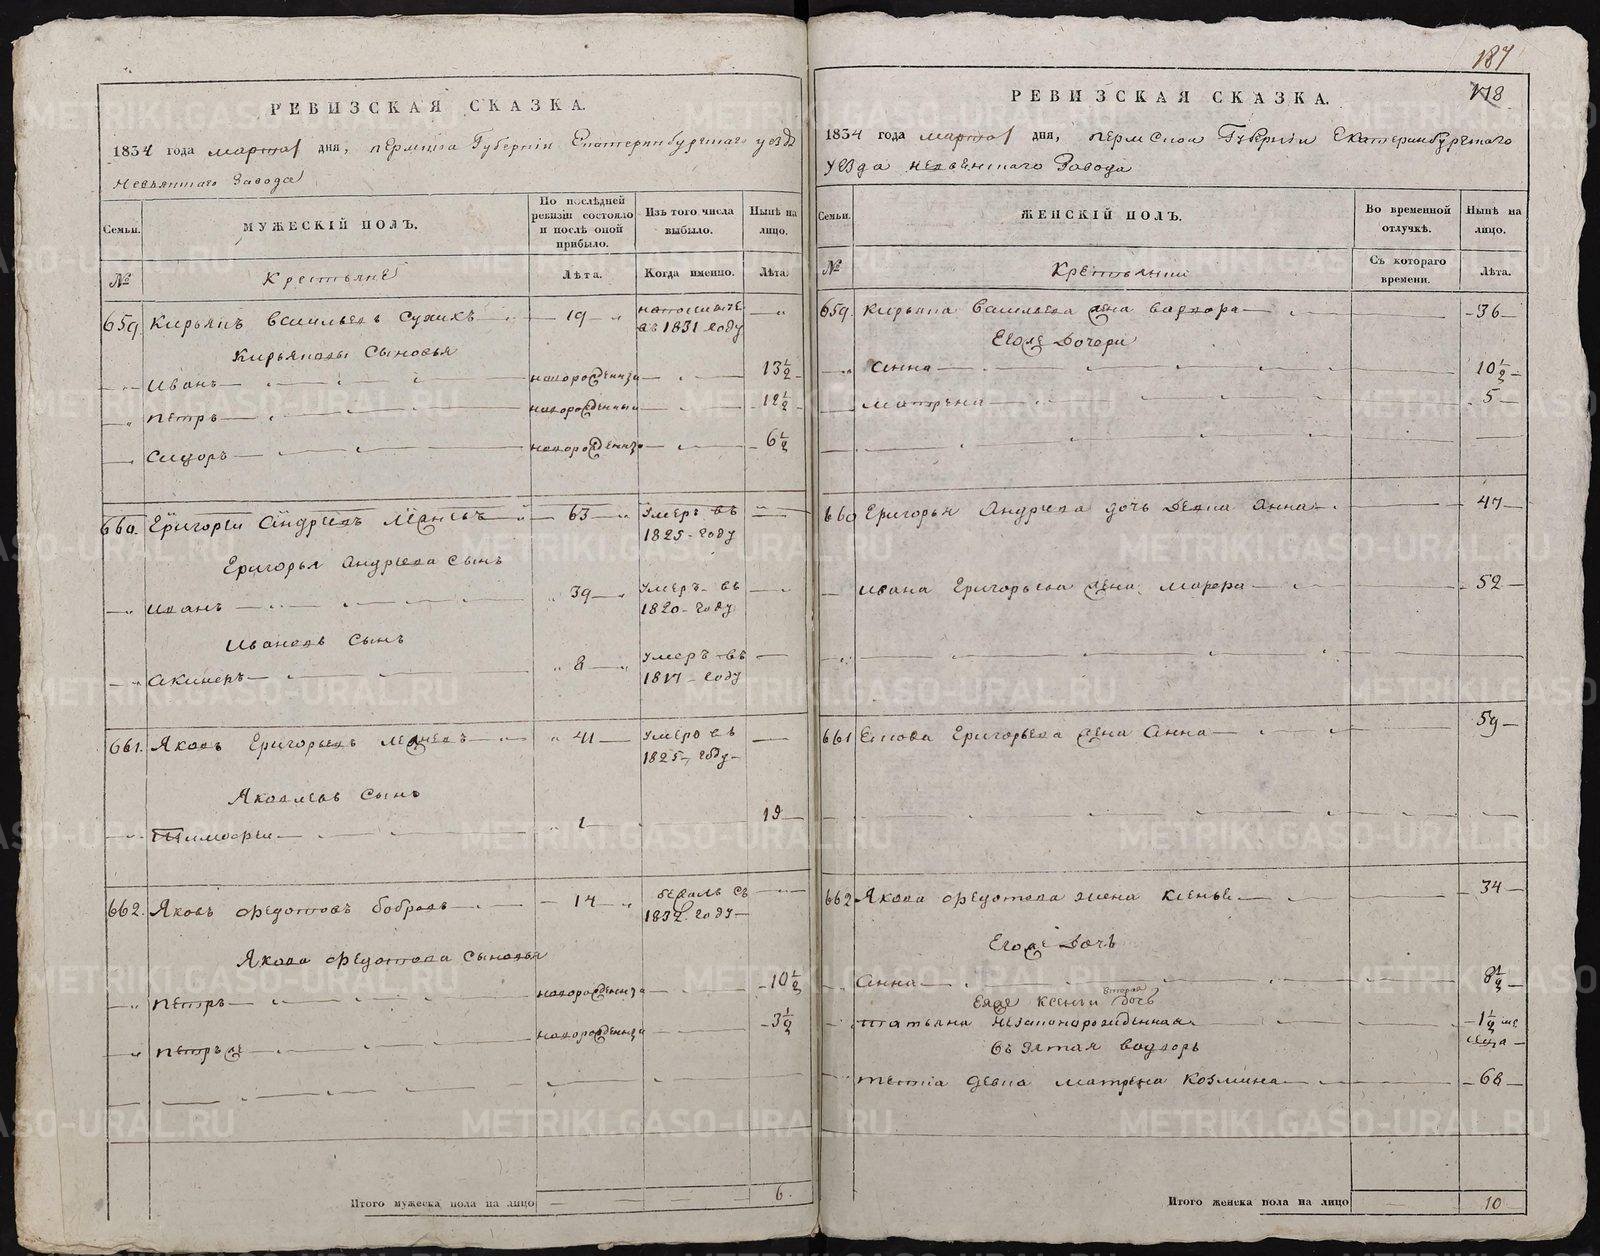 РЕВИЗСКАЯ СКАЗКА.
1834 года марта 1 дня, пермская Губернiи Екатеринбургскаго уезда
Невьянскаго Завода
Семьи.
МУЖЕСКIЙ ПОЛЪ.
По послѣдней ревизiи состояло и послѣ оной прибыло.
Изъ того числа выбыло.
Нынѣ на лицо.
№
Крестьяне
Лѣта.
Когда именно.
Лѣта.
659 Кирьянъ Васильевъ Сухихъ 19
в 1831 году
Кирьяновы Сыновья
Иванъ новорожденны 13 1/2
Петръ новорожденны 12 1/2
Сидоръ новорожденны 6 1/2
660. Григорей Андреевъ 63 Умеръ въ
1825 году
Григорья Андреева Сынъ
Иванъ 39 Умеръ въ
1820 году
Ивановъ Сынъ
8 Умеръ въ
1817 году
661. Яковъ Григорьевъ 41 Умеръ въ
1825 году
Яковлевъ Сынъ
Тимофеи 1 19
662. Яковъ Федотовъ Бобровъ 14 бежалъ съ
1832 году
Якова Федотова Сыновья
Петръ новорожденны 10 1/2
Петръ же новорожденны 3 1/2
Итого мужеска пола на лицо 6.
187
178
РЕВИЗСКАЯ СКАЗКА.
1834 года марта 1 дня, пермской Губернiи Екатеринбургскаго
уезда невьянскаго Завода
Семьи.
ЖЕНСКIЙ ПОЛЪ.
Во временной отлучкѣ.
Нынѣ на лицо.
№
Крестьянки
Съ котораго времени.
Лѣта.
659. Кирьяна Васильева жена Варвара 36
Еголе Дочери
Анна 10 1/2
Матрена 5
660 Григорья Андреева дочь Девка Анна 47
Ивана Григорьева жена Марфа 52
661 Григорьева жена Анна 59
662 Якова Федотова жена Ксенья 34
Еголе Дочь
Анна 8 1/2
Еяже Ксеньи вторая Дочь
татьяна незаконорожденная 1 1/2 ме
сеца
тетка девка Матрена Козмина 68
Итого женска пола на лицо 10
METRIKI.GASO-URAL.RU